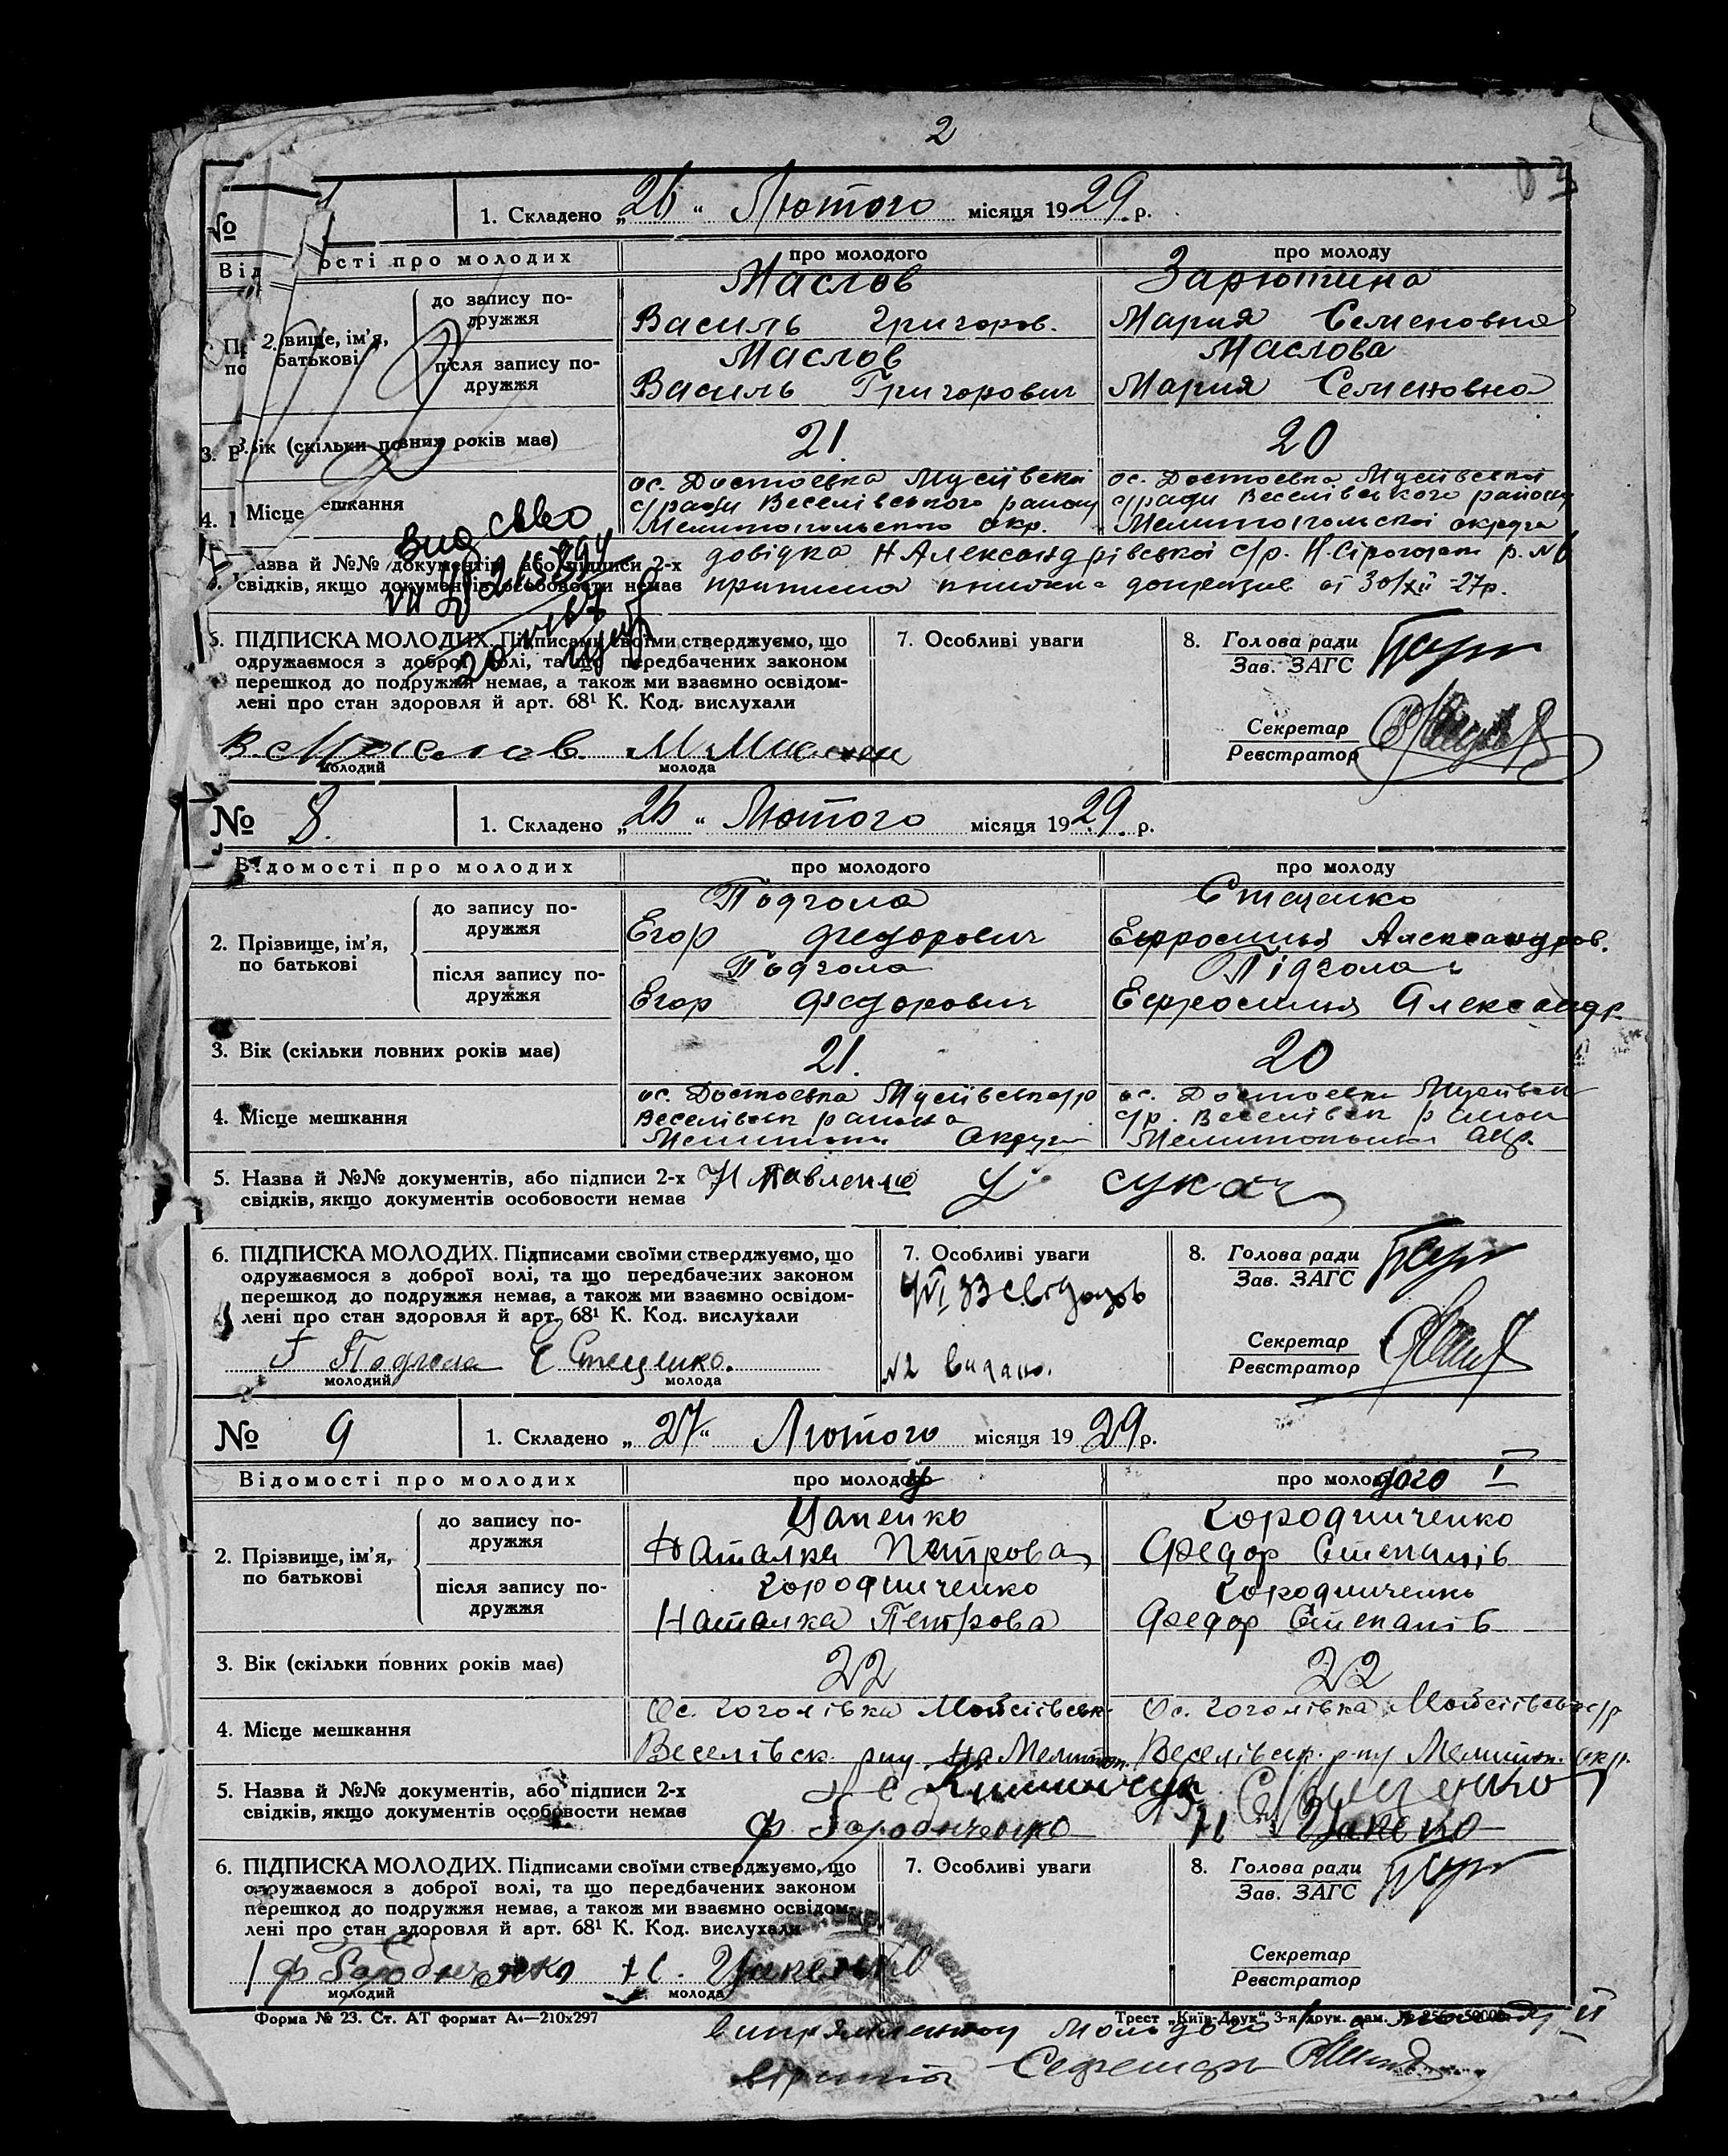 2
№
1. Складено „26“ Лютого місяця 1929 р.
Від ості про молодих
про молодого
про молоду
2. вище, ім’я, батькові
до запису по-
дружжя
Маслов
Василь Григоров.
Зарютина
Мария Семеновна
після запису по-
дружжя
Маслов
Василь Григорович
Маслова
Мария Семеновна
3. Вік (скільки повних років має)
21.
20
4. Місце ешкання
ос. Достоевка Мусіївскої
с/ради Веселівського району
Мелитопольської окр.
ос. Достоевка Мусіївської
с/ради Веселівського району
Мелитопольскої округи
Назва й №№ документів, або підписи 2-х
свідків, якщо документів особовости немає
довідка НАлександрівської с/р. Н. Сірогозьк р. №6
приписна книжка 30/XII-27р.
6. ПІДПИСКА МОЛОДИХ. Підписами своїми стверджуємо, що
одружаємося з доброї волі, та що передбачених законом
перешкод до подружжя немає, а також ми взаємно освідом-
лені про стан здоровля й арт. 68¹ К. Код. вислухали
В. Маслов М Маслова
молодий
молода
7. Особливі уваги
8. Голова ради
Зав. ЗАГС
Секретар
Реєстратор
№ 8.
1. Складено „26“ Лютого місяця 1929. р.
Відомості про молодих
про молодого
про молоду
2. Прізвище, ім’я,
по батькові
до запису по-
дружжя
Подгола
Егор Федорович
Стеценко
Ефросинья Александров.
після запису по-
дружжя
Подгола
Егор Федорович
Підгола
Ефросинья Александр.
3. Вік (скільки повних років має)
21.
20
4. Місце мешкання
ос. Достоевка Мусіївськ с/р
Веселівськ района
Мелитоп Округи
ос. Достоевка Мусіївськ
с/р. Веселівськ район
Мелитопольск окр.
5. Назва й №№ документів, або підписи 2-х
свідків, якщо документів особовости немає
Н Павленко
У сукач
6. ПІДПИСКА МОЛОДИХ. Підписами своїми стверджуємо, що
одружаємося з доброї волі, та що передбачених законом
перешкод до подружжя немає, а також ми взаємно освідом-
лені про стан здоровля й арт. 68¹ К. Код. вислухали
Г Подгола Е Стеценко.
молодий
молода
7. Особливі уваги
№2 видано.
8. Голова ради
Зав. ЗАГС
Секретар
Реєстратор
№ 9
1. Складено „27“ Лютого місяця 1929 р.
Відомості про молодих
про молоду
про молодого I
2. Прізвище, ім’я,
по батькові
до запису по-
дружжя
Цапенко
Наталка Петрова
Городниченко
Федор Степанів
після запису по-
дружжя
Городниченко
Наталка Петрова
Городниченко
Федор Степанів
3. Вік (скільки повних років має)
22
22
4. Місце мешкання
Ос. Гоголівка Мойсіївськ.
Веселівск. р-ну на Мелитоп.
Ос. Гоголівка Мойсіївськ с/р
Веселівск. р-ну Мелитоп. окр.
5. Назва й №№ документів, або підписи 2-х
свідків, якщо документів особовости немає
Ф Городниченко Н Цапенко
6. ПІДПИСКА МОЛОДИХ. Підписами своїми стверджуємо, що
одружаємося з доброї волі, та що передбачених законом
перешкод до подружжя немає, а також ми взаємно освідом-
лені про стан здоровля й арт. 68¹ К. Код. вислухали
Ф Городниченко Н. Цапенко
молодий
молода
7. Особливі уваги
8. Голова ради
Зав. ЗАГС
Секретар
Реєстратор
Форма № 23. Ст. АТ формат А₄—210х297
Трест „Київ-Друк“ 3-я друк. зам.
молодого
вірити Секретарь